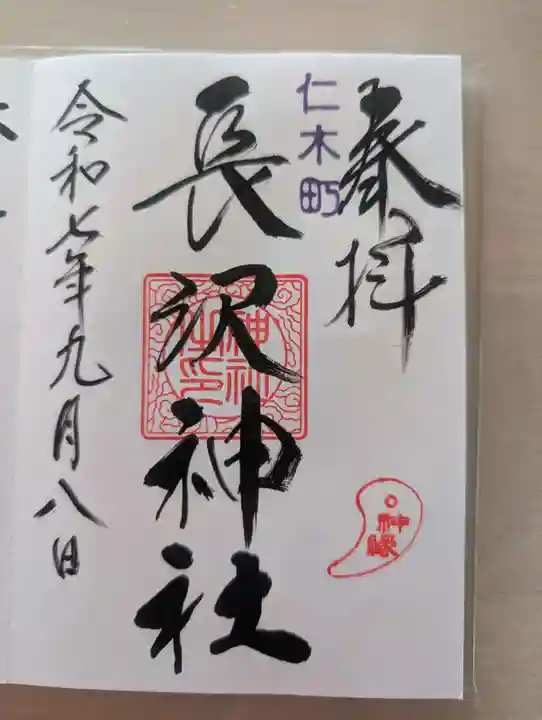 奉拝
仁木町
長沢神社
神社
之印
神縁
令和七年九月八日